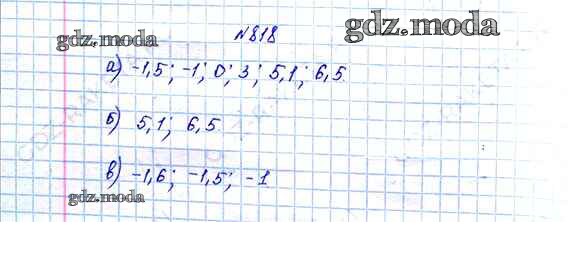 №818
gdz.moda
gdz.moda
а) -1,5; -1; 0; 3; 5,1; 6,5.
б) 5,1; 6,5.
в) -1,6; -1,5; -1
gdz.moda